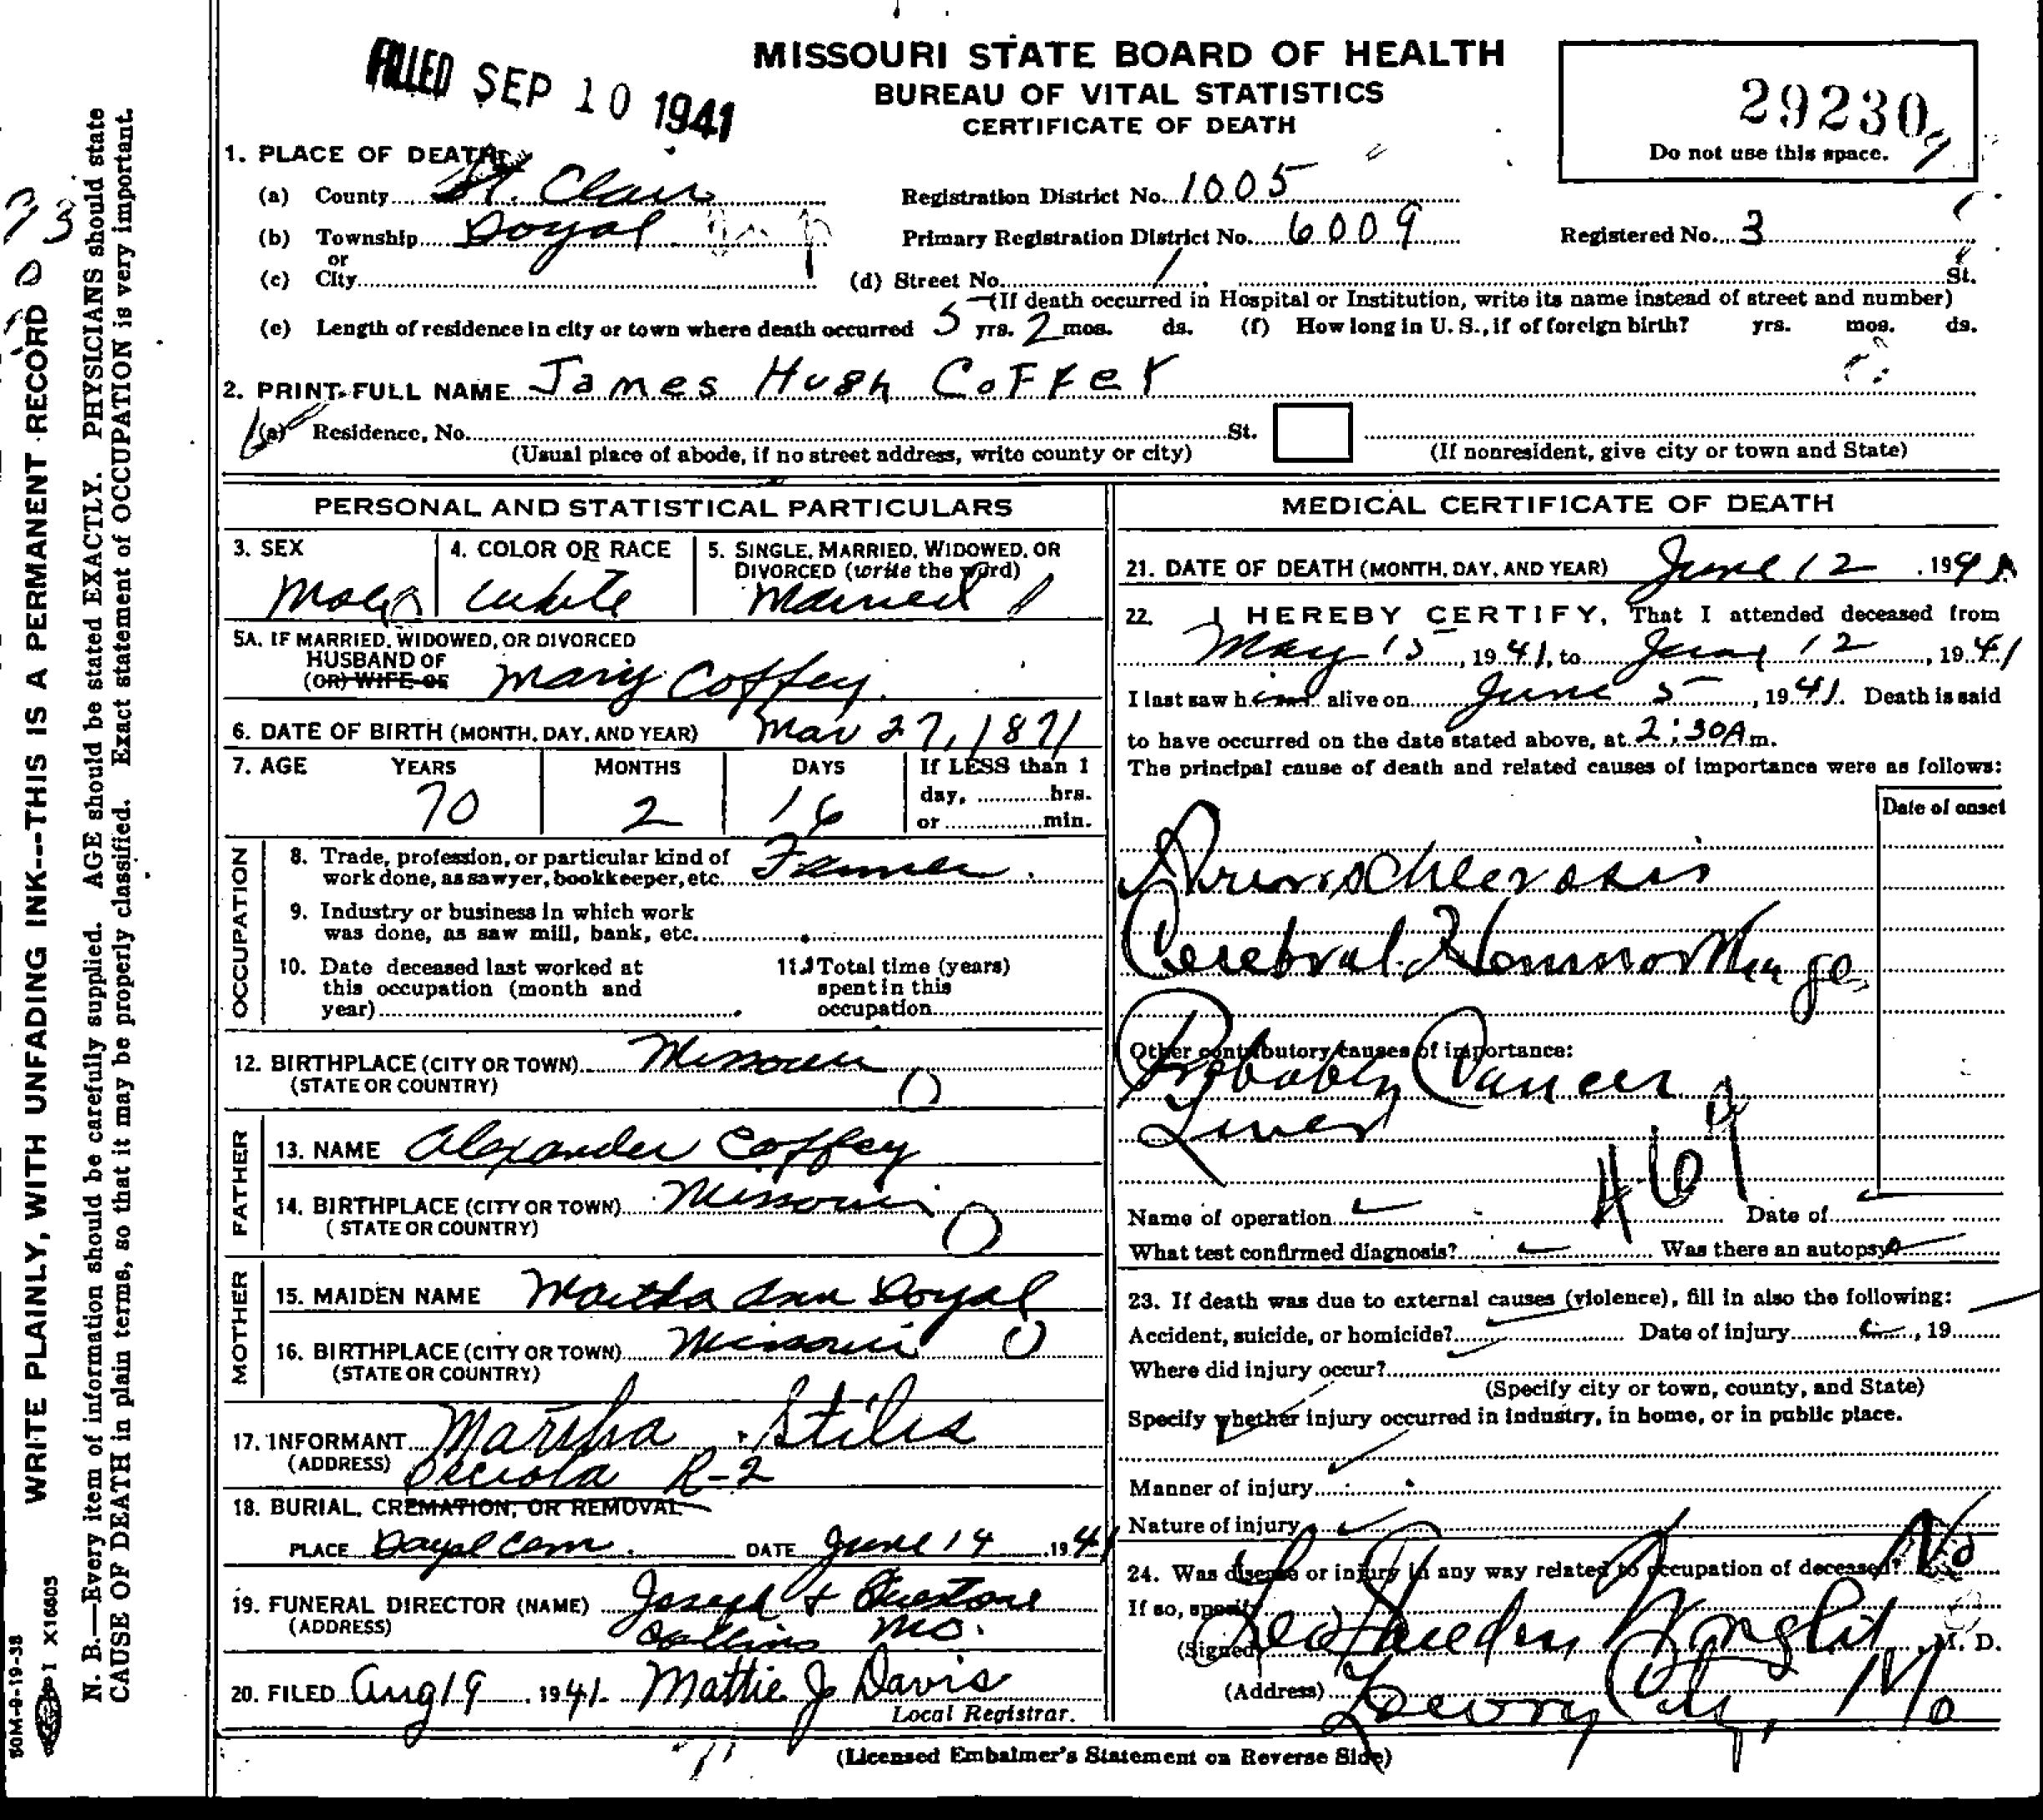 FILED SEP 10 1941
MISSOURI STATE BOARD OF HEALTH
BUREAU OF VITAL STATISTICS
CERTIFICATE OF DEATH
29230
Do not use this space.
1. PLACE OF DEATH
(a) County St. Clair
Registration District No. 1005
(b) Township Doyal
or
Primary Registration District No. 6009
Registered No. 3
(c) City
(d) Street No. St.
(If death occurred in Hospital or Institution, write its name instead of street and number)
(e) Length of residence in city or town where death occurred 5 yrs. 2 mos. ds. (f) How long in U. S., if of foreign birth? yrs. mos. ds.
2. PRINT FULL NAME James Hugh Coffey
(a) Residence, No. St.
(Usual place of abode, if no street address, write county or city)
(If nonresident, give city or town and State)
PERSONAL AND STATISTICAL PARTICULARS
3. SEX
Male
4. COLOR OR RACE
White
5. SINGLE, MARRIED, WIDOWED, OR
DIVORCED (write the word)
Married
5A. IF MARRIED, WIDOWED, OR DIVORCED
HUSBAND OF
(OR) WIFE OF
Mary Coffey
6. DATE OF BIRTH (MONTH, DAY, AND YEAR) Mar 27, 1871
7. AGE YEARS MONTHS DAYS If LESS than 1
day, hrs.
or min.
70 2 16
OCCUPATION
8. Trade, profession, or particular kind of
work done, as sawyer, bookkeeper, etc. Farmer
9. Industry or business in which work
was done, as saw mill, bank, etc.
10. Date deceased last worked at
this occupation (month and
year)
11. Total time (years)
spent in this
occupation
12. BIRTHPLACE (CITY OR TOWN) Missouri
(STATE OR COUNTRY)
FATHER
13. NAME Alexander Coffey
14. BIRTHPLACE (CITY OR TOWN) Missouri
(STATE OR COUNTRY)
MOTHER
15. MAIDEN NAME Martha Ann Doyal
16. BIRTHPLACE (CITY OR TOWN) Missouri
(STATE OR COUNTRY)
17. INFORMANT Marsha Stiles
(ADDRESS) Osceola R-2
18. BURIAL, CREMATION, OR REMOVAL
PLACE Doyal Cem. DATE June 14 1941
19. FUNERAL DIRECTOR (NAME) Joseph &
(ADDRESS) Collins Mo.
20. FILED Aug 19 1941. Mattie J Davis
Local Registrar.
MEDICAL CERTIFICATE OF DEATH
21. DATE OF DEATH (MONTH, DAY, AND YEAR) June 12 , 1941
22. I HEREBY CERTIFY, That I attended deceased from
May 15, 1941, to June 12, 1941
I last saw him alive on June 5, 1941. Death is said
to have occurred on the date stated above, at 2:30 A m.
The principal cause of death and related causes of importance were as follows:
Date of onset
Cerebral
Other contributory causes of importance:
Probably Cancer
Liver
Name of operation Date of
What test confirmed diagnosis? Was there an autopsy?
23. If death was due to external causes (violence), fill in also the following:
Accident, suicide, or homicide? Date of injury , 19
Where did injury occur?
(Specify city or town, county, and State)
Specify whether injury occurred in industry, in home, or in public place.
Manner of injury
Nature of injury
24. Was disease or injury in any way related to occupation of deceased? No
If so, specify
(Signed) M. D.
(Address) Lowry City, Mo
(Licensed Embalmer's Statement on Reverse Side)
WRITE PLAINLY, WITH UNFADING INK---THIS IS A PERMANENT RECORD
N. B.—Every item of information should be carefully supplied. AGE should be stated EXACTLY. PHYSICIANS should state
CAUSE OF DEATH in plain terms, so that it may be properly classified. Exact statement of OCCUPATION is very important.
50M-9-19-38
I X16605